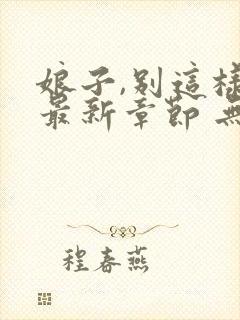 娘子,別這樣
最新章節 無
程春燕